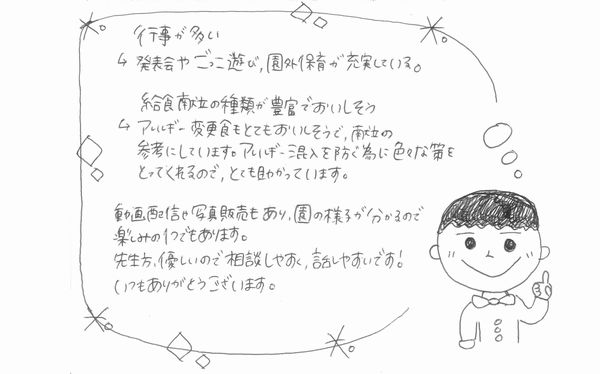 行事が多い
↳ 発表会やごっこ遊び,園外保育が充実している。
給食献立の種類が豊富でおいしそう
↳ アレルギー変更食もとてもおいしそうで,献立の
参考にしています。アレルギー混入を防ぐ為に色々な策を
とってくれるので,とても助かっています。
動画配信や写真販売もあり,園の様子が分かるので
楽しみの1つでもあります。
先生方,優しいので相談しやすく,話しやすいです!
いつもありがとうございます。